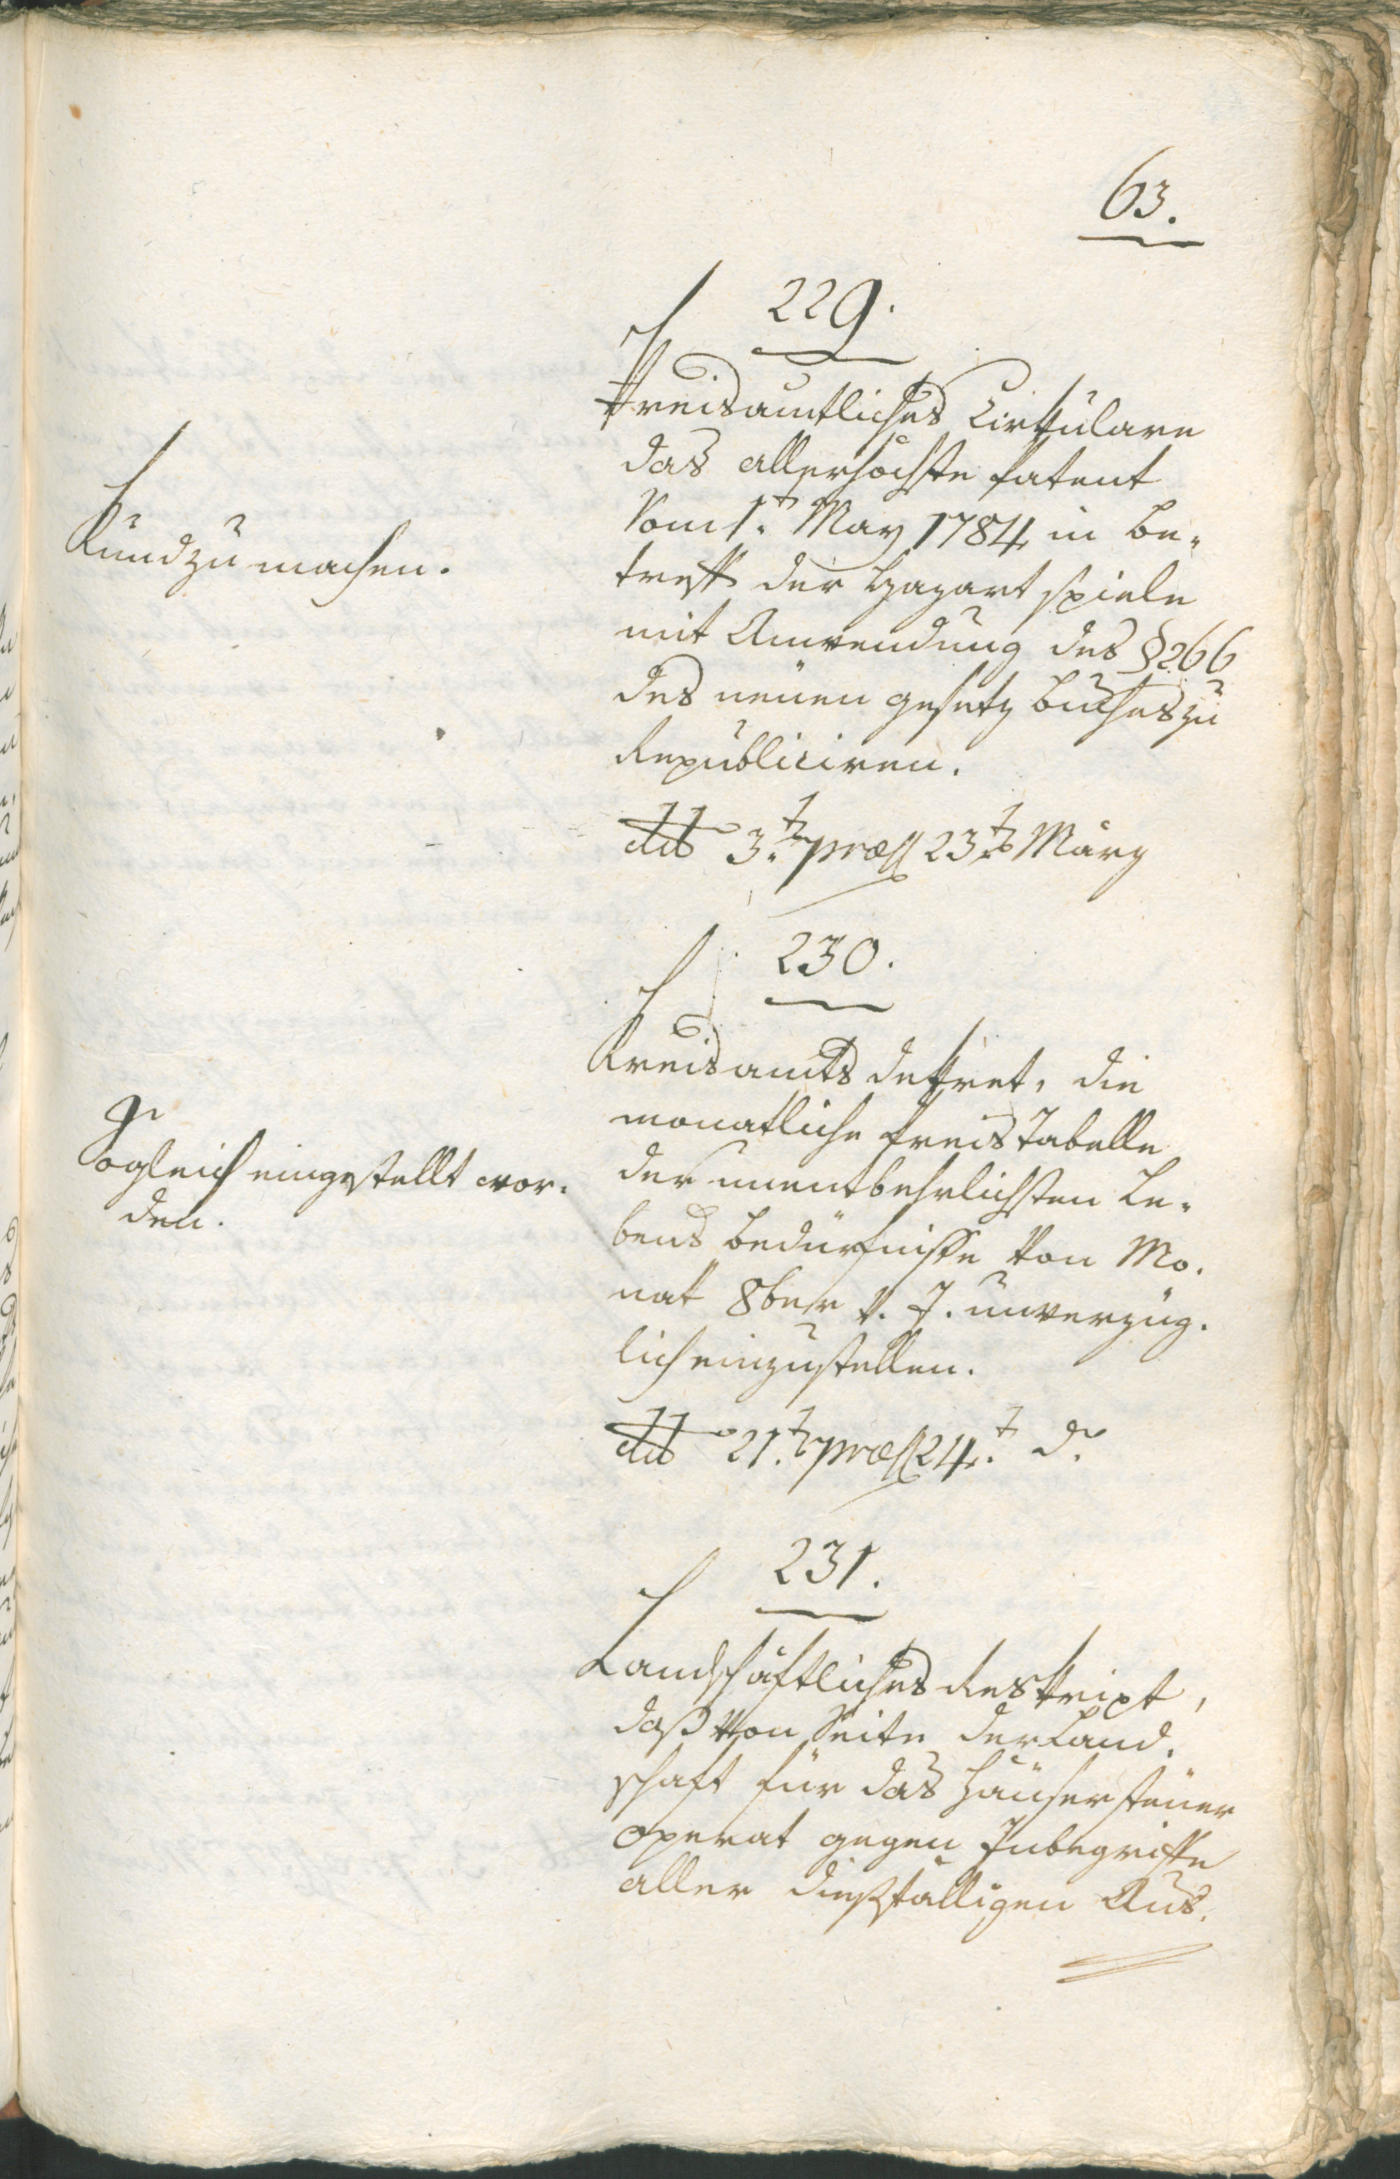 63.
229.
Kreisamtliches Cirkulare
das allerhöchste Patent
vom 1.t May 1784 in be-
treff der Hazart spiele
mit Anwendung des § 266
des neuen gesetz buches zu
Republiciren.
dtto 3.t præs 23.t März
Kund zu machen.
230.
Kreisamts dekret, die
monatliche Preis Tabelle
der unentbehrlichsten Le-
bens bedürfnisse von Mo-
nat 8ber v. J. unverzüg-
lich einzustellen.
dtto 21.t præs 24.t do
Sogleich eingestellt wor-
den.
231.
Landschäftliches Reskript,
daß von Seite der Land-
schaft für das Häusersteuer
operat gegen Inbegriffe
aller dießfälligen Aus-